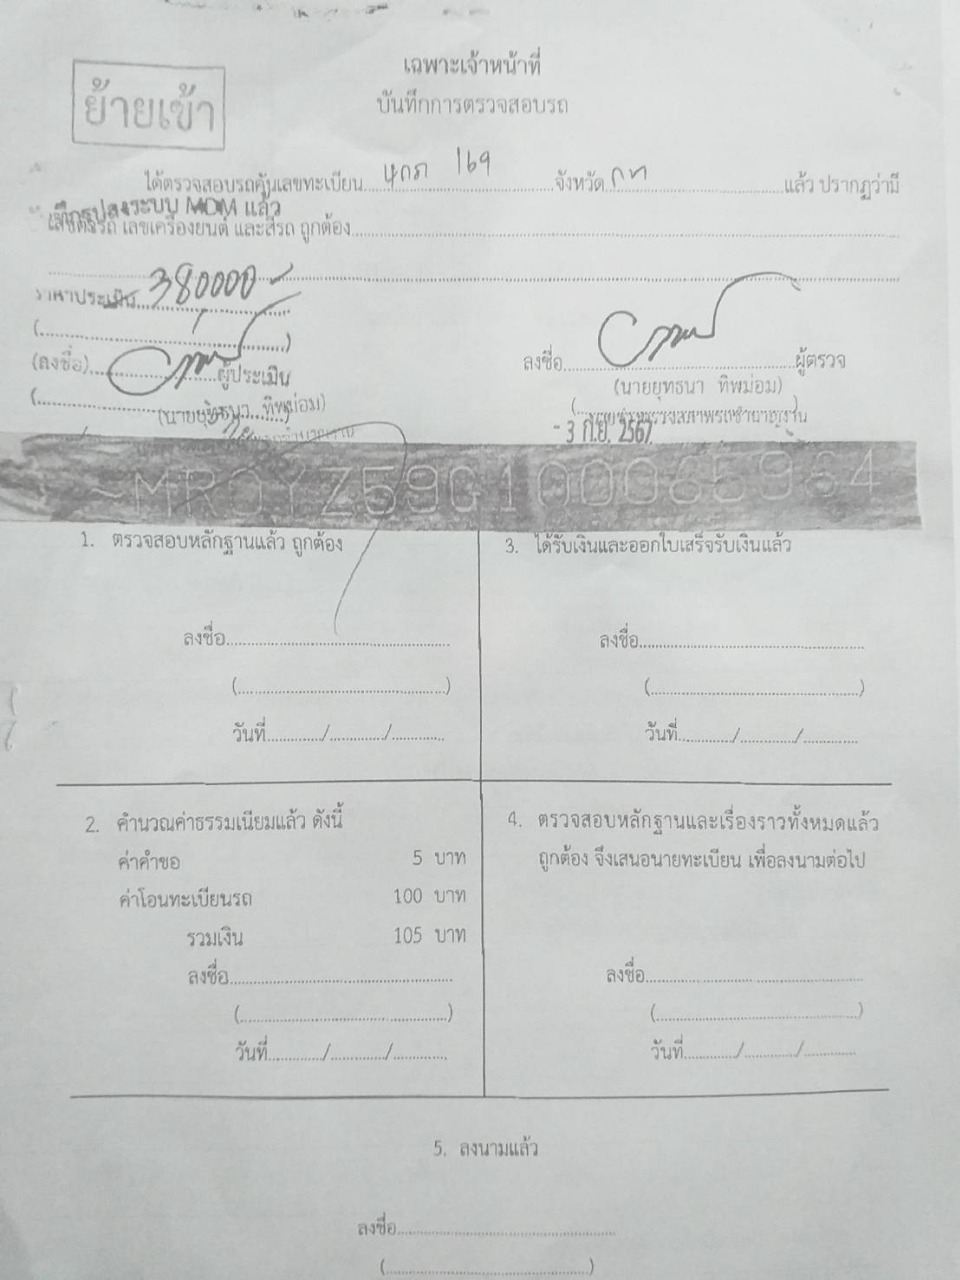 เฉพาะเจ้าหน้าที่
ย้ายเข้า
บันทึกการตรวจสอบรถ
ได้ตรวจสอบรถคันเลขทะเบียน 169 จังหวัด กท แล้ว ปรากฏว่ามี
ระบบ MDM แล้ว
เลขตัวรถ เลขเครื่องยนต์ และสีรถ ถูกต้อง
ราคาประเมิน 380000
(ลงชื่อ) ผู้ประเมิน
(นายยุทธนา ทิพม่อม)
ลงชื่อ ผู้ตรวจ
(นายยุทธนา ทิพม่อม)
นายช่างตรวจสภาพรถชำนาญงาน
- 3 ก.ย. 2567
~MR0YZ59G100065964
1. ตรวจสอบหลักฐานแล้ว ถูกต้อง
ลงชื่อ
(....................)
วันที่........./........./.........
3. ได้รับเงินและออกใบเสร็จรับเงินแล้ว
ลงชื่อ
(....................)
วันที่........./........./.........
2. คำนวณค่าธรรมเนียมแล้ว ดังนี้
ค่าคำขอ 5 บาท
ค่าโอนทะเบียนรถ 100 บาท
รวมเงิน 105 บาท
ลงชื่อ
(....................)
วันที่........./........./.........
4. ตรวจสอบหลักฐานและเรื่องราวทั้งหมดแล้ว
ถูกต้อง จึงเสนอนายทะเบียน เพื่อลงนามต่อไป
ลงชื่อ
(....................)
วันที่........./........./.........
5. ลงนามแล้ว
ลงชื่อ
(....................)